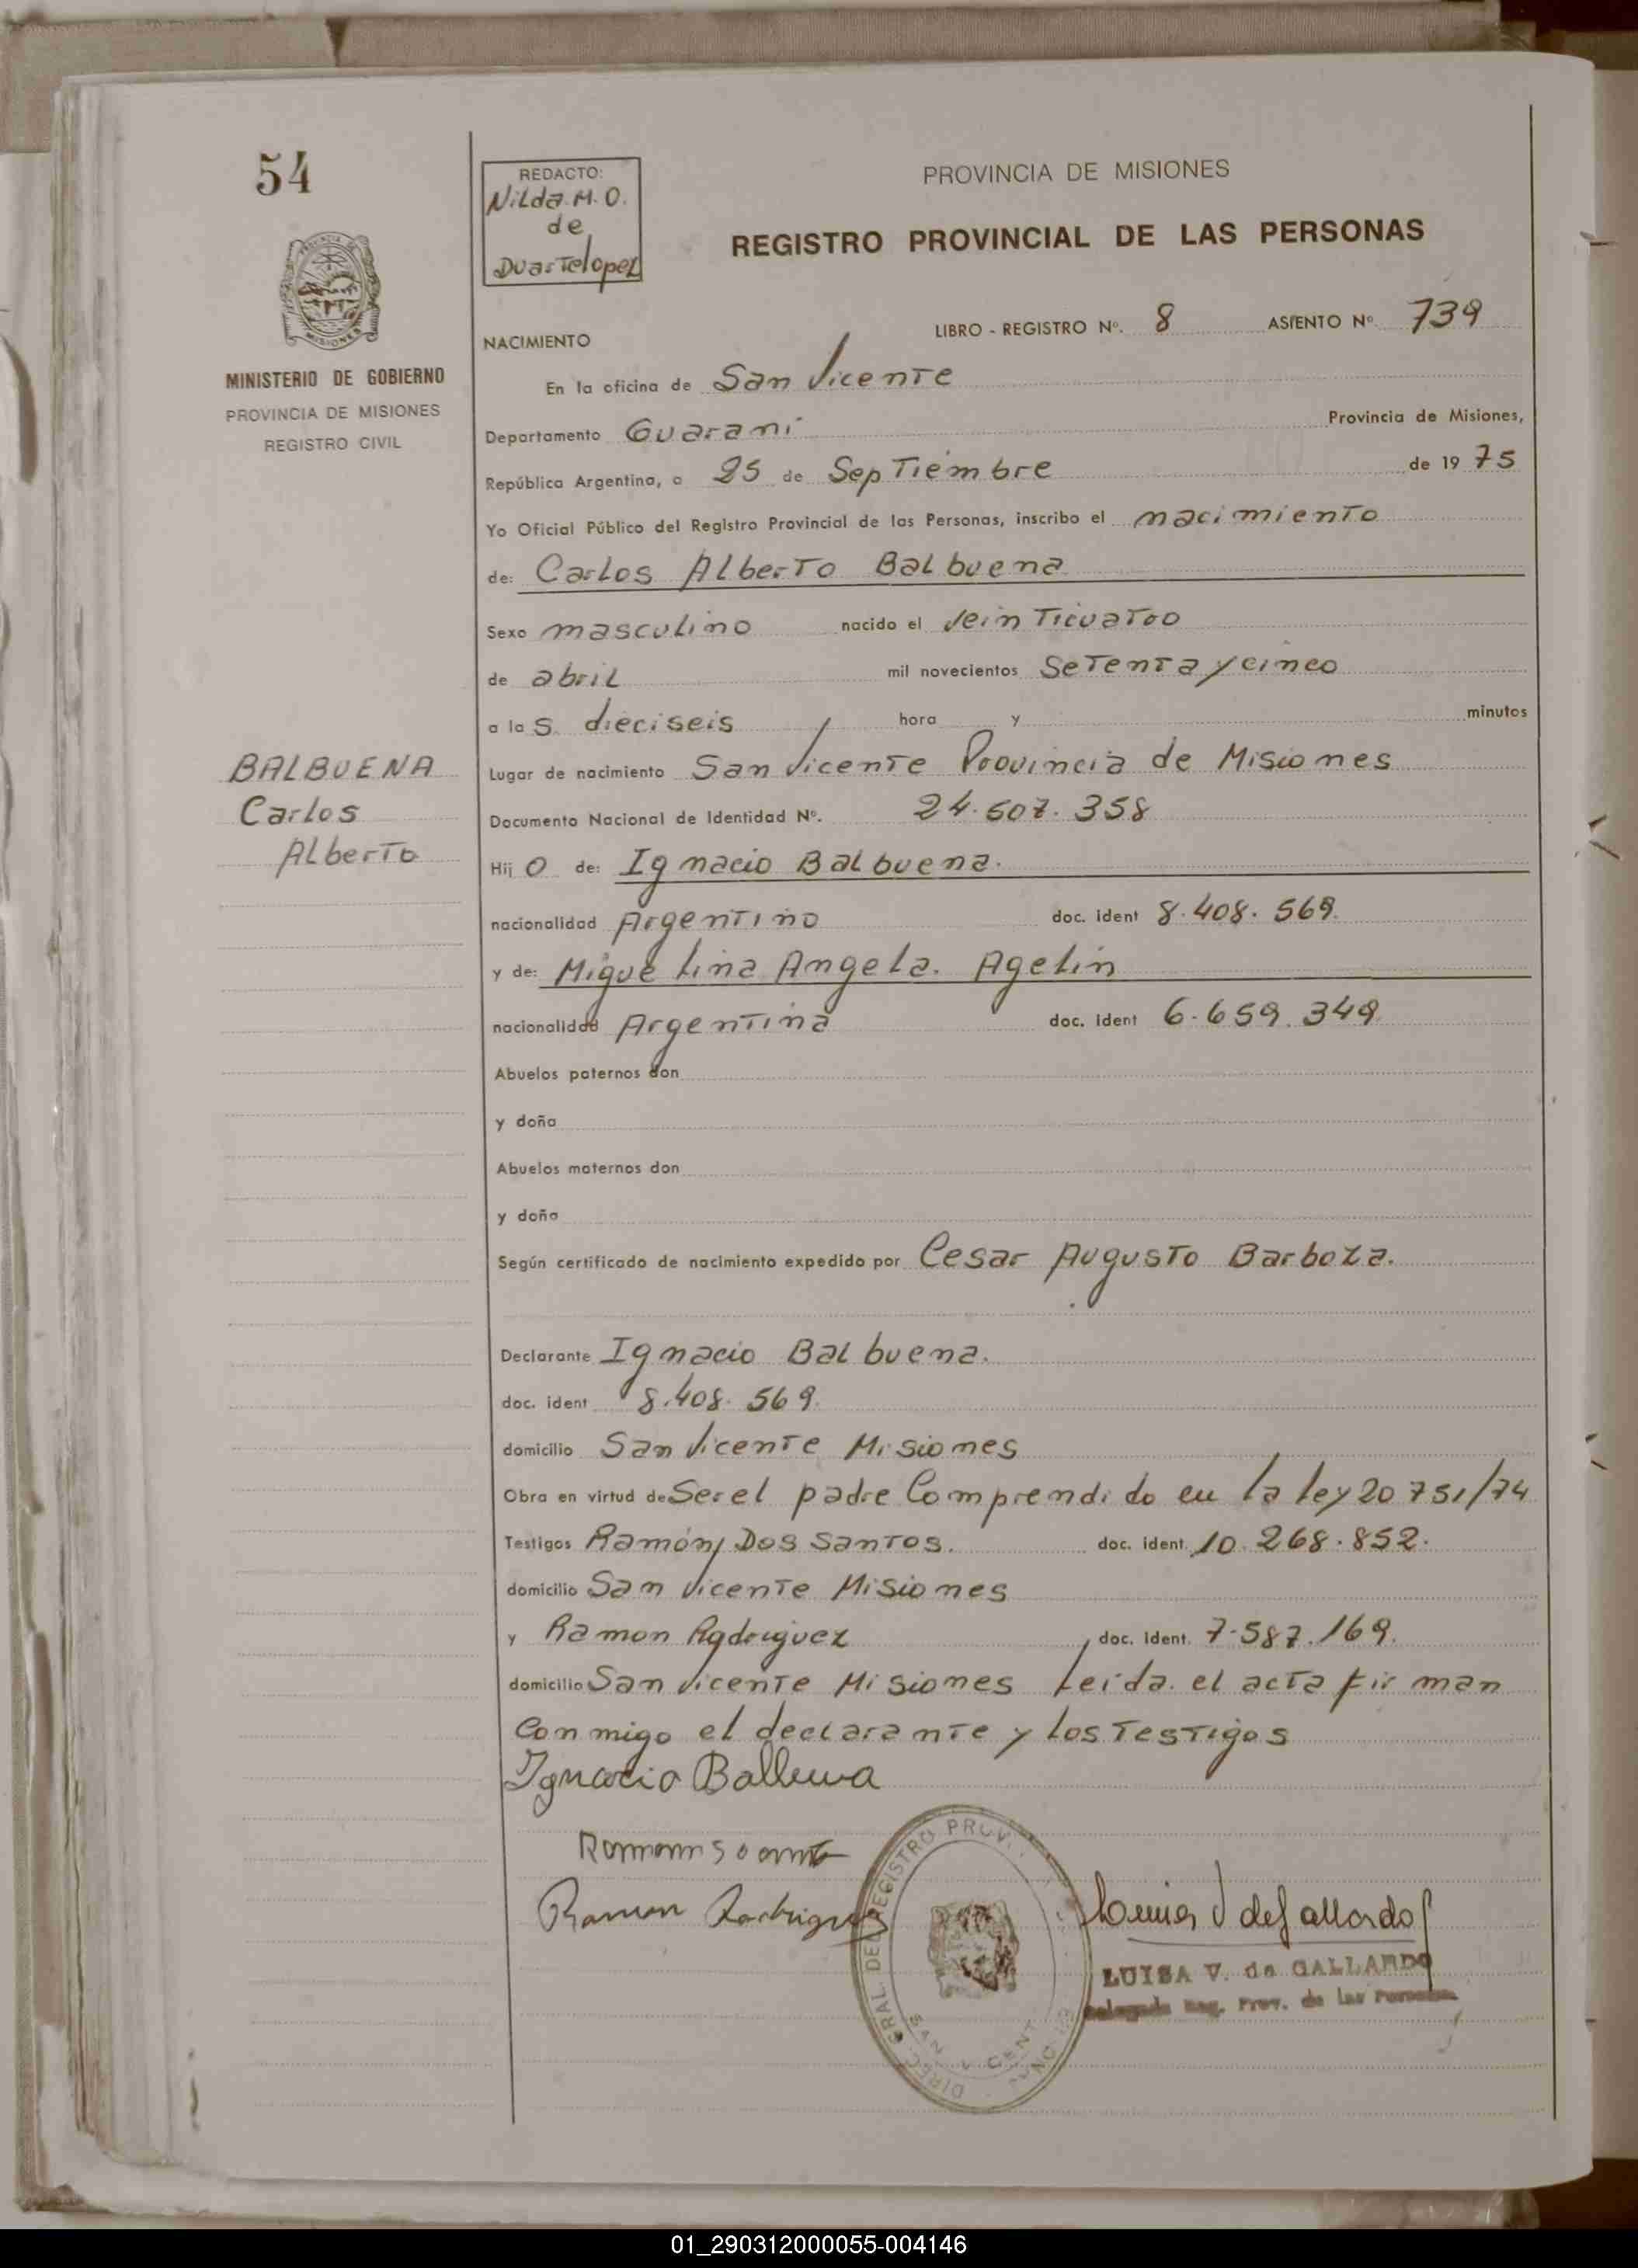 54
REDACTO:
Nilda M. O.
de
Duartelopez
PROVINCIA DE MISIONES
REGISTRO PROVINCIAL DE LAS PERSONAS
MINISTERIO DE GOBIERNO
PROVINCIA DE MISIONES
REGISTRO CIVIL
LIBRO - REGISTRO Nº. 8 ASIENTO Nº 739
NACIMIENTO
En la oficina de San Vicente
Departamento Guarani Provincia de Misiones,
República Argentina, a 25 de Septiembre de 1975
Yo Oficial Público del Registro Provincial de las Personas, inscribo el nacimiento
de: Carlos Alberto Balbuena
Sexo masculino nacido el Veinticuatro
de abril mil novecientos Setenta y cinco
a las dieciseis hora y minutos
BALBUENA
Carlos
Alberto
Lugar de nacimiento San Vicente Provincia de Misiones
Documento Nacional de Identidad Nº. 24.607.358
Hijo de: Ignacio Balbuena.
nacionalidad Argentino doc. ident 8.408.569.
y de: Miguelina Angela. Agelin
nacionalidad Argentina doc. ident 6.659.349.
Abuelos paternos don
y doña
Abuelos maternos don
y doña
Según certificado de nacimiento expedido por Cesar Augusto Barboza.
Declarante Ignacio Balbuena.
doc. ident 8.408.569.
domicilio San Vicente Misiones
Obra en virtud de Ser el padre Comprendido en la ley 20751/74
Testigos Ramón Dos Santos. doc. ident. 10.268.852.
domicilio San Vicente Misiones
y Ramon Rodriguez doc. ident. 7.587.169.
domicilio San Vicente Misiones Leida el acta firman
Conmigo el declarante y los Testigos
Ignacio Balbuena
Ramon Rodriguez
DIREC. GRAL. DEL REGISTRO PROV.
Luisa V de Gallardo
LUISA V. de GALLARDO
Delegada Reg. Prov. de las Personas
01_290312000055-004146